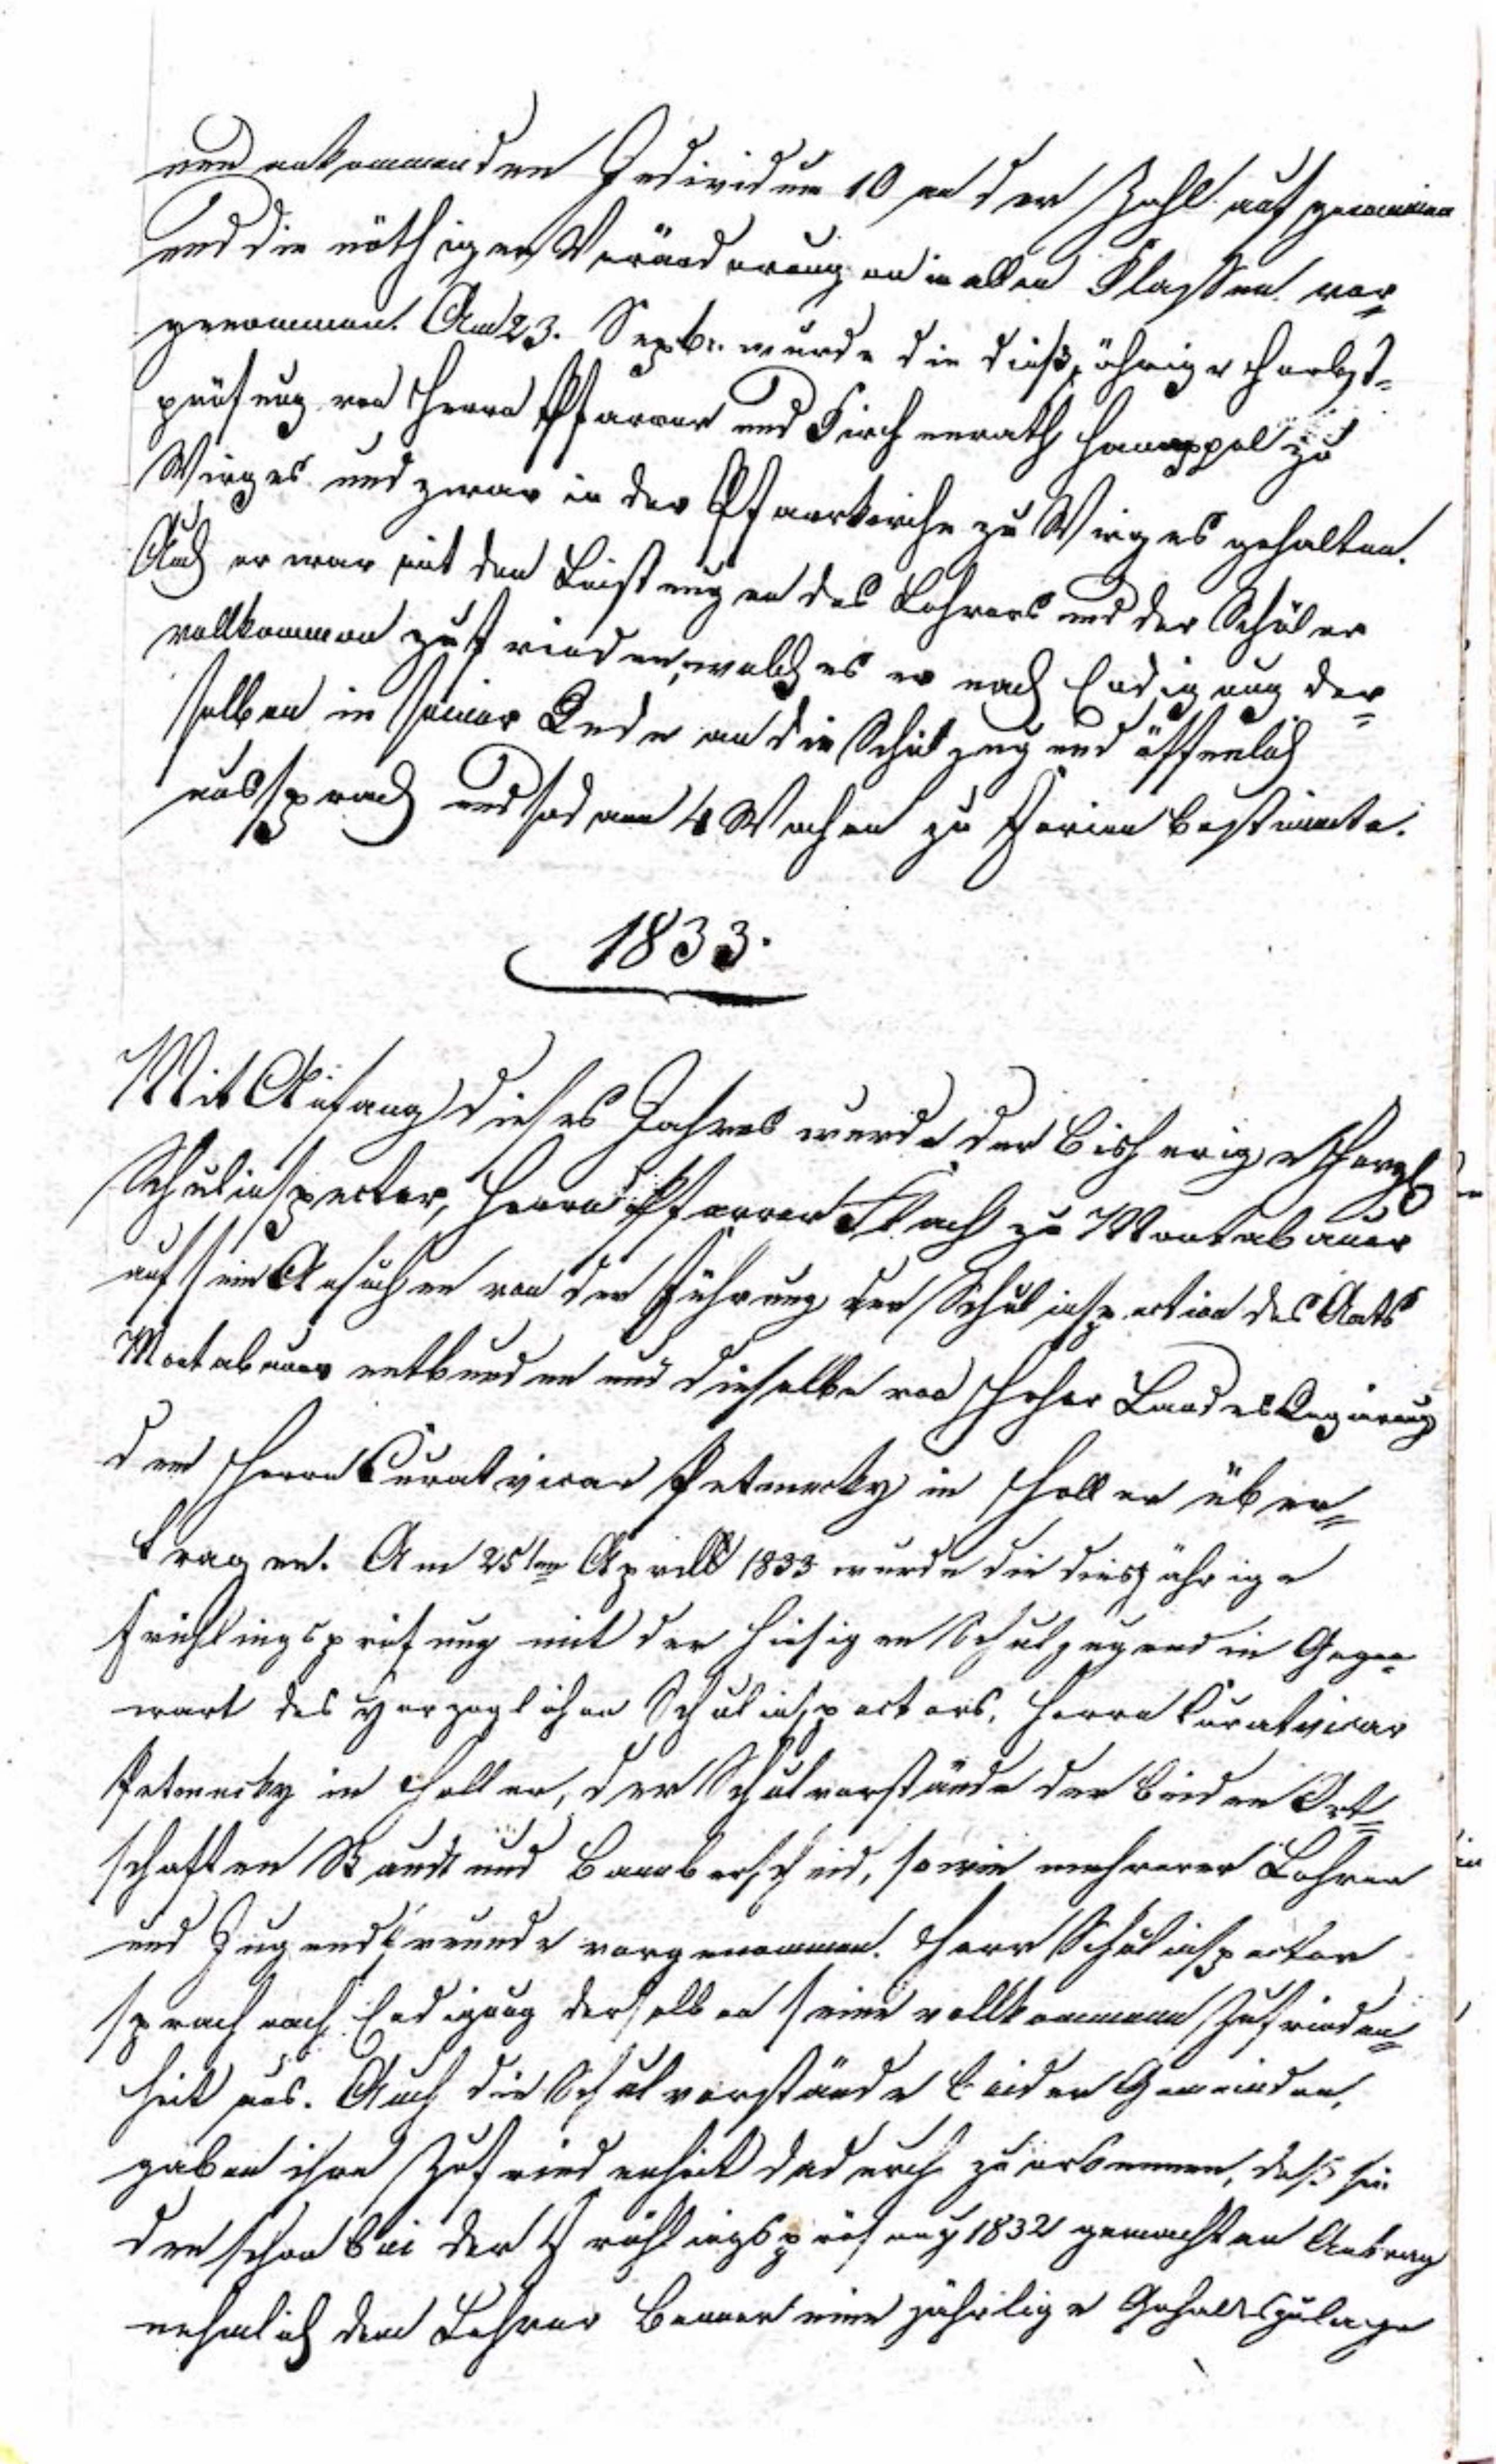 neu ankommenden Individuen 10 an der Zahl aufgenommen
und die nöthigen Veränderungen in allen Klassen vor=
genommen. Am 23. Septbr. wurde die dießjährige Herbst=
prüfung von Herrn Pfarrer und Kirchenrath Hannappel zu
Wirges und zwar in der Pfarrkirche zu Wirges gehalten.
Auch er war mit den Leistungen des Lehrers und der Schüler
vollkommen zufrieden, welches er nach Endigung der=
selben in seiner Rede an die Schuljugend öffenlich
aussprach und sodann 4 Wochen zu Ferien bestimmte.
1833.
Mit Anfang dieses Jahres wurde der bisherige Herzgl
Schulinspector, Herrn Pfarrer Flach zu Montabauer
auf sein Ansuchen von der Führung der Schulinspection des Amts
Montabauer entbunden und dieselbe von Hoher Landes Regierung
dem Herrn Curatvicar Petmecky in Holler über=
tragen. Am 25ten Aprill 1833 wurde die diesjährige
Frühlingsprüfung mit der hiesigen Schuljugend in Gegen=
wart des Herzoglichen Schulinspectors, Herrn Curatvicar
Petmecky in Holler, der Schulvorstände der beiden Ort=
schaften Staudt und Bannberscheid, sowie mehrerer Lehrer
und Jugendfreunde vorgenommen. Herr Schulinspector
sprach nach Endigung derselben seine vollkommene Zufrieden=
heit aus. Auch die Schulvorstände beider Gemeinden,
gaben ihre Zufriedenheit dadurch zu erkennen, daß sie
den schon bei der Frühlingsprüfung 1832 gemachten Antrag
nehmlich dem Lehrer eine jährlige Gehaltszulage